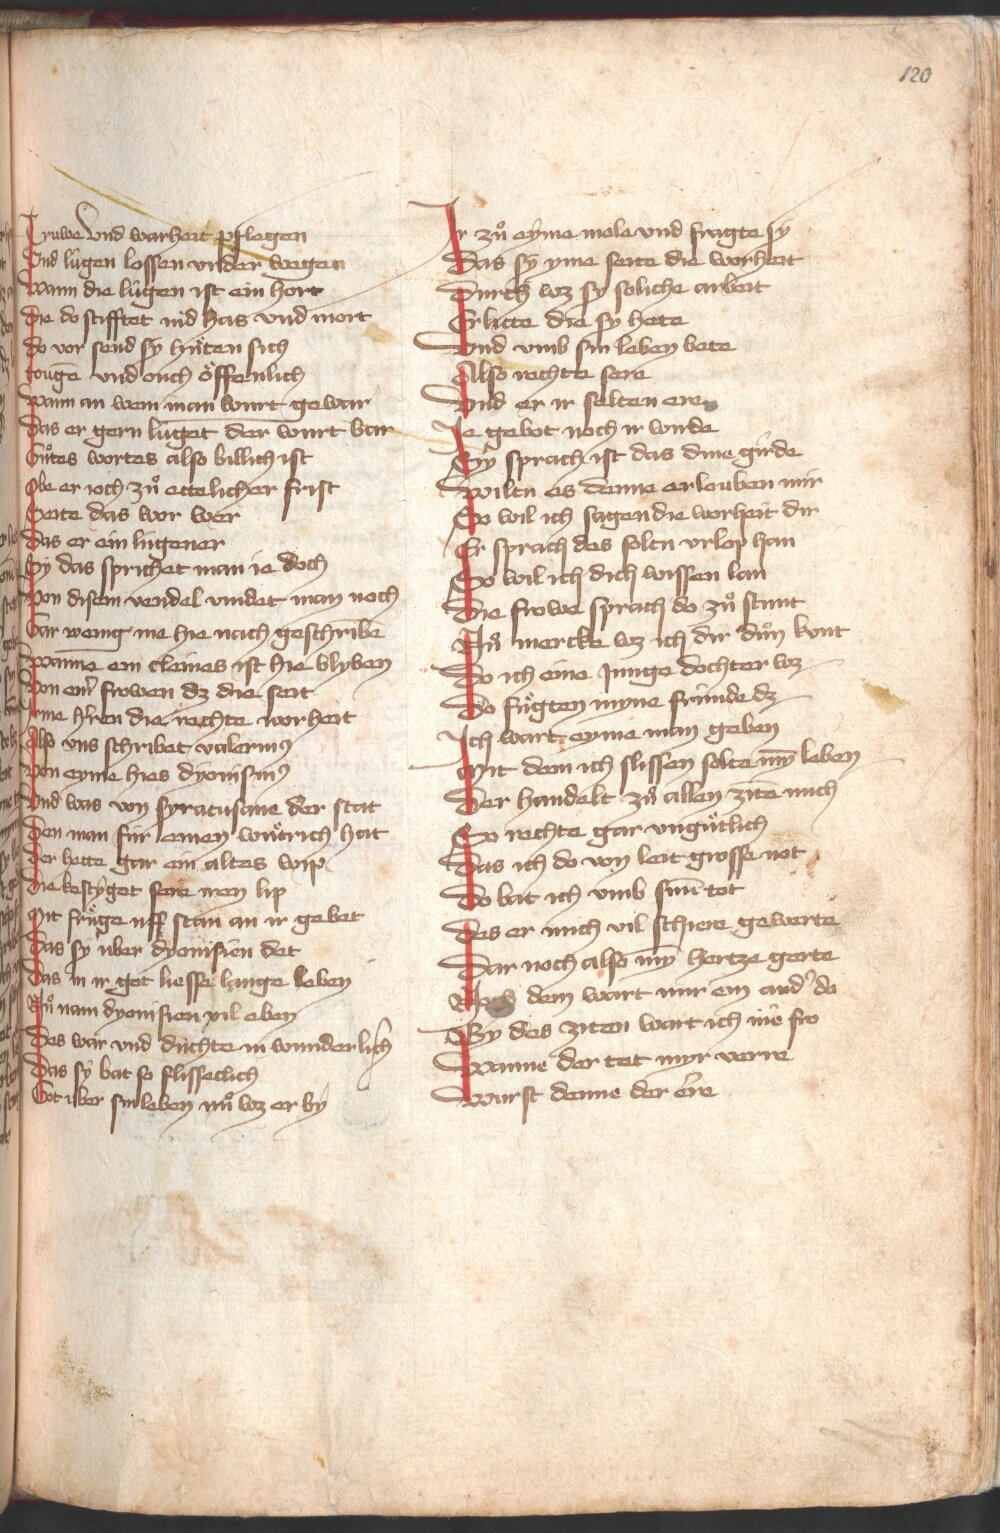 120
Truwe vnd warheit pflegen
Vnd lúgen lossen vnder wegen
Wann die lúgen ist ein hort
Die do stifftet nid has vnd mort
Do vor send sy hu̍ten sich
tougē vnd ouch öffenlich
Wann an wem man wurt gewar
Das er gern luget der wurt bar
Gůtes wortes also billich ist
Obe er ioch zů ettelicher frist
Seite das wor wer
Das er ein lúgener
Sy das sprichet man ie doch
Von disem vendel vindet man noch
Gar wenig me hie nach geschribē
Wanne ein cleines ist hie blyben
Von em̄ frowen dz die seit
yme h'ren die rechte worheit
Also vns schribet valerius
Von eyme hies dyonisius
Vnd was von syracusane der stat
Den man fúr einen wu̍trich hat
Der hette gar ein altes wip
Die kestyget sere iren lip
Mit fru̍ge uff stan an ir gebet
Das sy über dyonisien det
Das in ir got liesse lange leben
Nů nam dyonisien vil eben
Des war vnd duchte in wunderlich
Das sy bat so flisseclich
Got über sin leben nů wz er by
Ir zů eyme mole vnd fragte sy
Das sy yme seite die worheit
Durch wz sy soliche arbeit
Erlitte die sy hete
Vnd vmb sin leben bete
Also rechte sere
Vnd er ir selten ere
Ie gebot noch ir wirde
Sy sprach ist das dine girde
Wiltu es denne erlouben mir
So wil ich sagen die worheit dir
Er sprach des soltu vrlop han
So wil ich dich wissen lan
Die frowe sprach do zů stunt
Nů mercke wz ich dir důn kunt
Do ich eine Junge dochter wz
Do fu̍gten myne frúnde dz
Ich wart eyme man geben
Mit dem ich slissen solte my̅ leben
Der handelt zů allen zitē mich
So rechte gar vngu̍tlich
Das ich do von leit grosse not
Do bat ich vmb sinē tot
Des er mich vil schiere gewerte
Dar noch also my̅ hertze gerte
Noch dem wart mir ein and' do
By des ziten wart ich nie fro
Wanne der tet myr verre
Wurst denne der ere